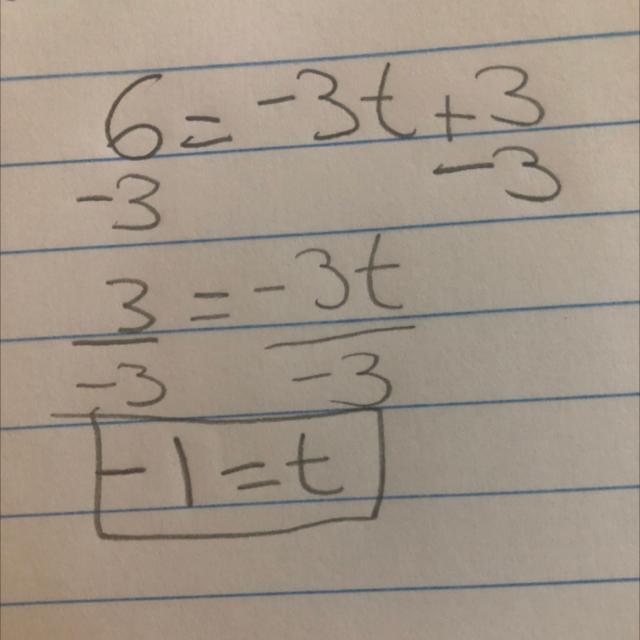 6 = -3t + 3
-3 -3
3 = -3t
-3 -3
-1 = t